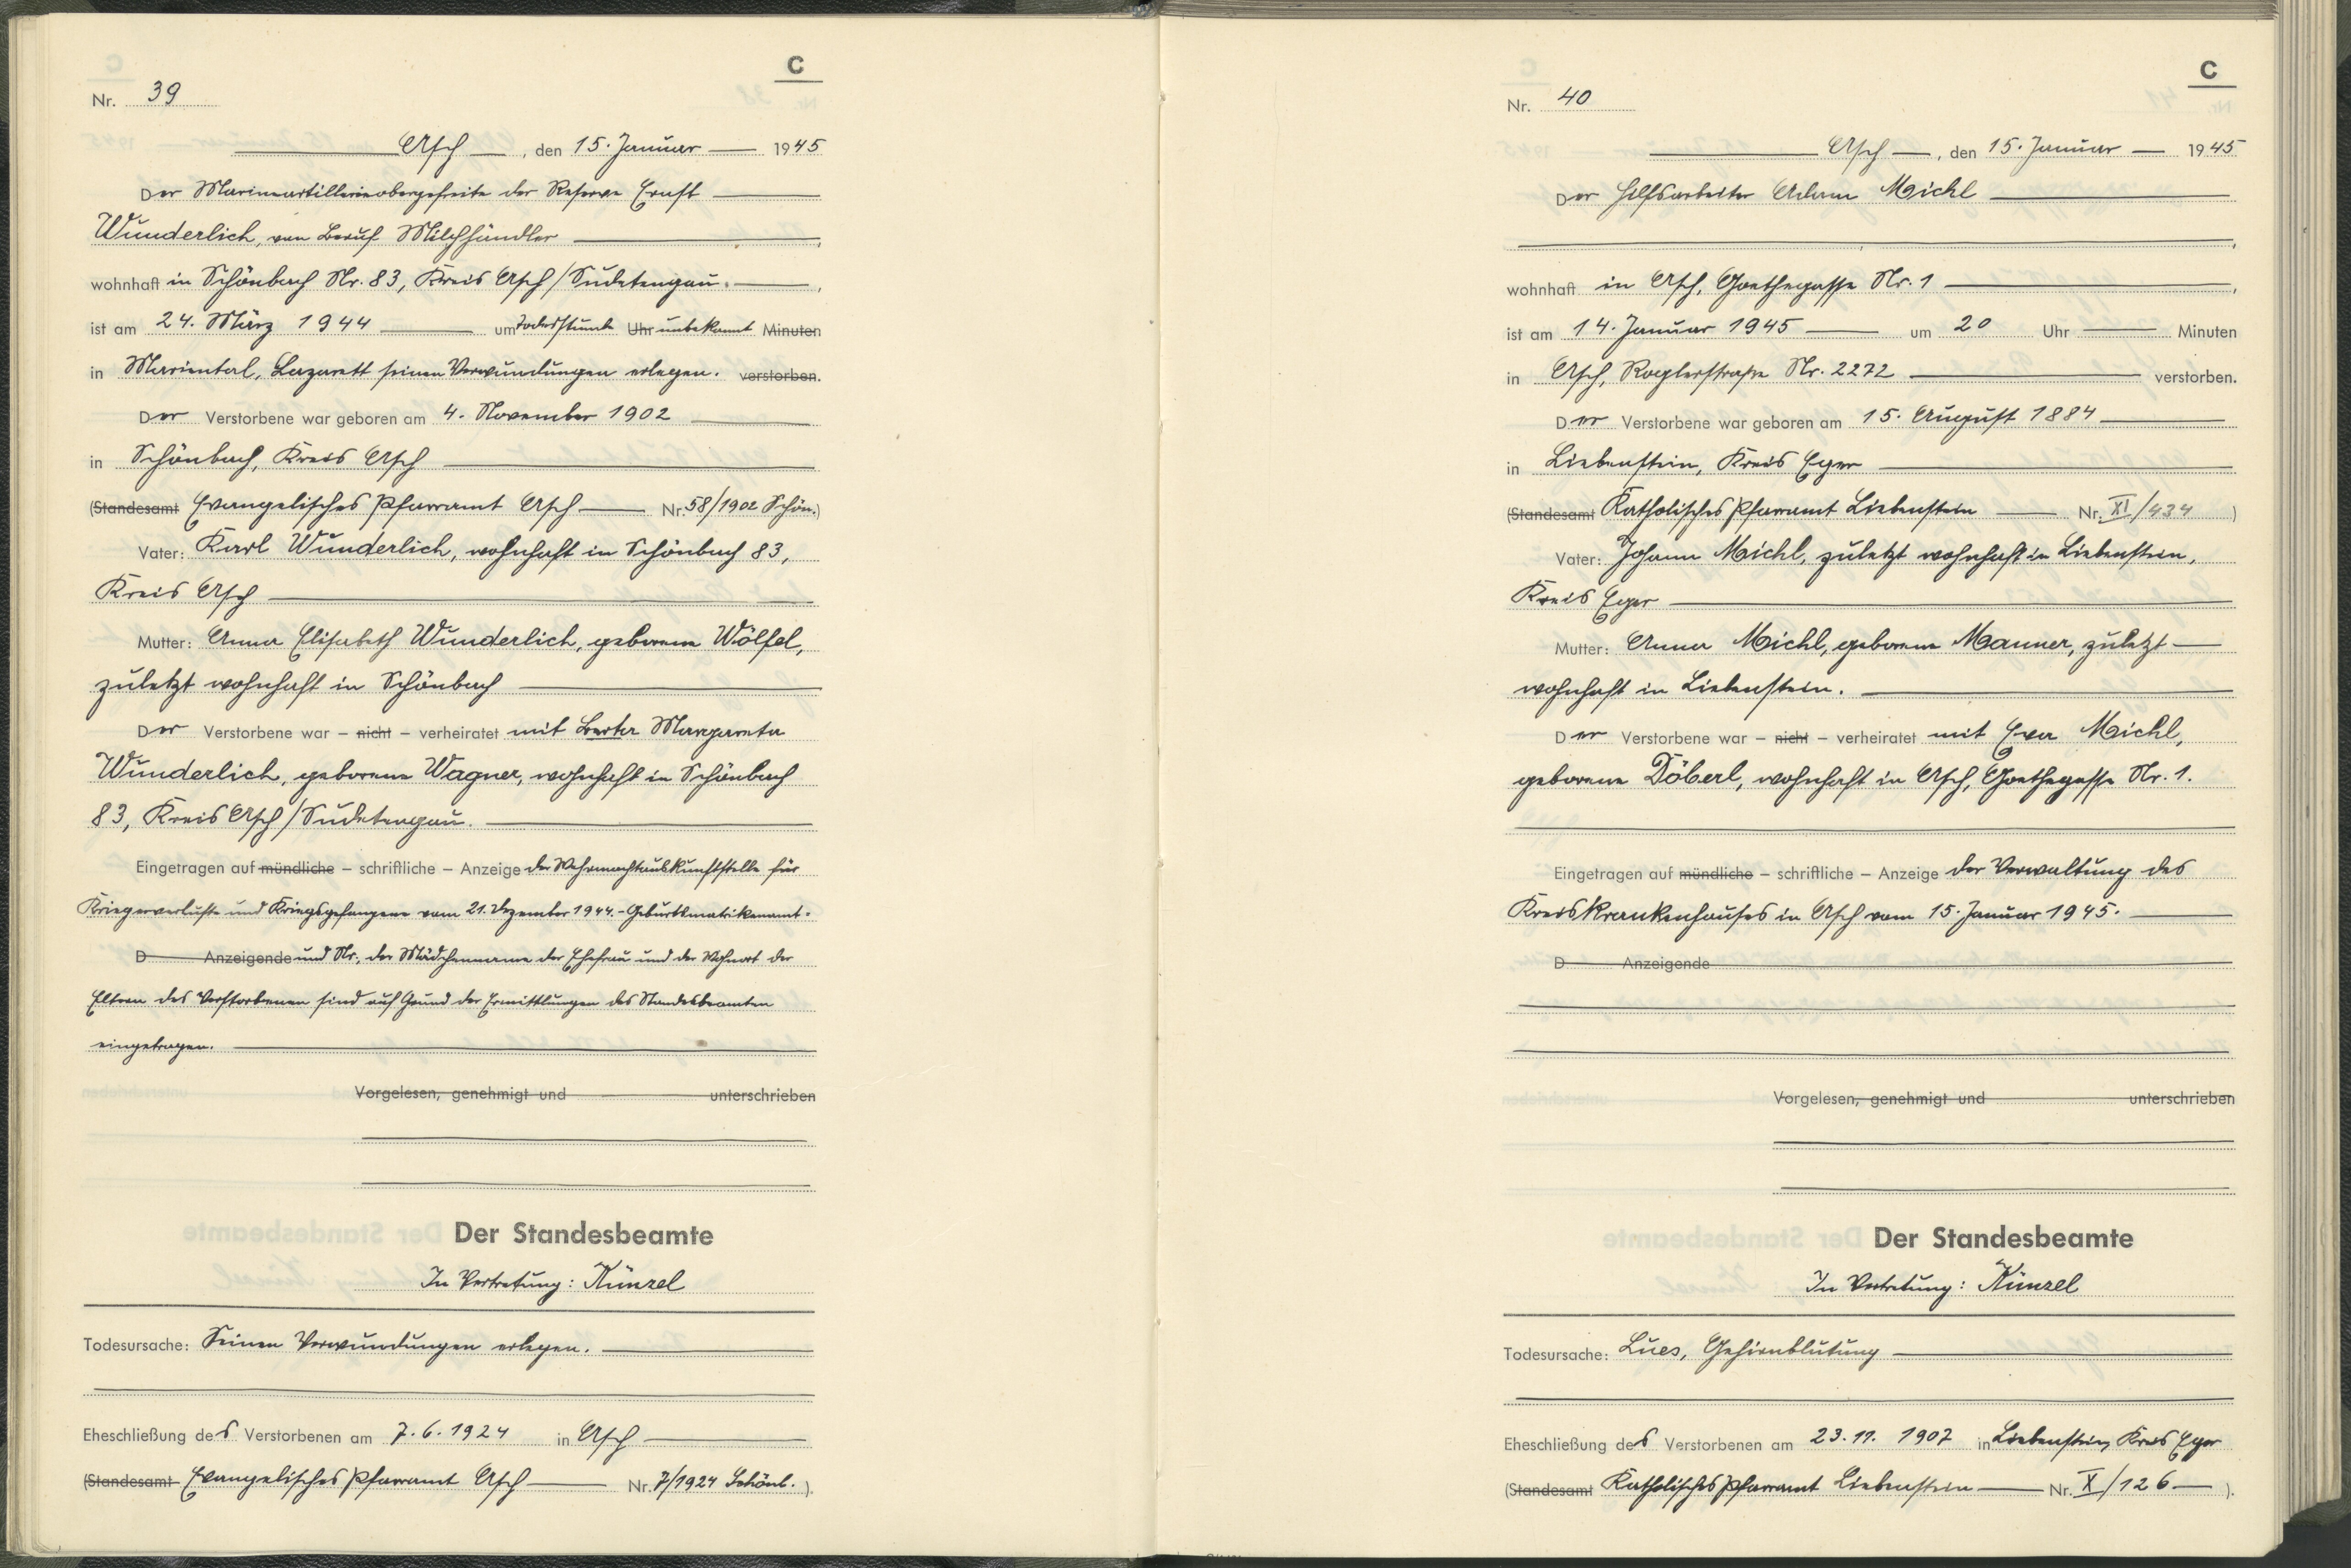 C
Nr. 39
Asch, den 15. Januar 1945
Der Marineartillerieobergefreite der Reserve Ernst
Wunderlich, von Beruf Milchhändler,
wohnhaft in Schönbach Nr. 83, Kreis Asch/Sudetengau.,
ist am 24. März 1944 um Todesstunde Uhr unbekannt Minuten
in Mariental, Lazarett seinen Verwundungen erlegen. verstorben.
Der Verstorbene war geboren am 4. November 1902
in Schönbach, Kreis Asch
(Standesamt Evangelisches Pfarramt Asch Nr. 58/1902 Schön.)
Vater: Karl Wunderlich, wohnhaft in Schönbach 83,
Kreis Asch
Mutter: Anna Elisabeth Wunderlich, geborene Wölfel,
zuletzt wohnhaft in Schönbach
Der Verstorbene war – nicht – verheiratet mit Berta Margareta
Wunderlich, geborene Wagner, wohnhaft in Schönbach
83, Kreis Asch/Sudetengau.
Eingetragen auf mündliche – schriftliche – Anzeige der Wehrmachtauskunftstelle für
Kriegerverluste und Kriegsgefangene vom 21. Dezember 1944.-Geburtsmatrikenamt-
D Anzeigende und Nr., der Mädchenname der Ehefrau und der Wohnort der
Eltern des Verstorbenen sind auf Grund der Ermittlungen des Standesbeamten
eingetragen.
Vorgelesen, genehmigt und unterschrieben
Der Standesbeamte
In Vertretung: Künzel
Todesursache: Seinen Verwundungen erlegen.
Eheschließung des Verstorbenen am 7.6.1924 in Asch
(Standesamt Evangelisches Pfarramt Asch Nr. 7/1924 Schönb. ).
C
Nr. 40
Asch, den 15. Januar 1945
Der Hilfsarbeiter Adam Michl
,
wohnhaft in Asch, Goethegasse Nr. 1,
ist am 14. Januar 1945 um 20 Uhr Minuten
in Asch, Roglerstraße Nr. 2272 verstorben.
Der Verstorbene war geboren am 15. August 1884
in Liebenstein, Kreis Eger
(Standesamt Katholisches Pfarramt Liebenstein Nr. XI/434 )
Vater: Johann Michl, zuletzt wohnhaft in Liebenstein,
Kreis Eger
Mutter: Anna Michl, geborene Manner, zuletzt
wohnhaft in Liebenstein.
Der Verstorbene war – nicht – verheiratet mit Eva Michl,
geborene Döberl, wohnhaft in Asch, Goethegasse Nr. 1.
Eingetragen auf mündliche – schriftliche – Anzeige der Verwaltung des
Kreiskrankenhauses in Asch vom 15. Januar 1945.
D Anzeigende
Vorgelesen, genehmigt und unterschrieben
Der Standesbeamte
In Vertretung: Künzel
Todesursache: Lues, Gehirnblutung
Eheschließung des Verstorbenen am 23.11. 1907 in Liebenstein, Kreis Eger
(Standesamt Katholisches Pfarramt Liebenstein Nr. X/126 ).